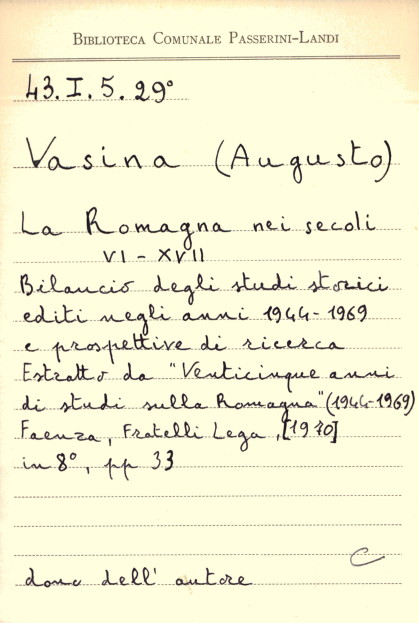 BIBLIOTECA COMUNALE PASSERINI-LANDI
43.I.5.29°
Vasina (Augusto)
La Romagna nei secoli
VI - XVII
Bilancio degli studi storici
editi negli anni 1944-1969
e prospettive di ricerca
Estratto da "Venticinque anni
di studi sulla Romagna" (1944-1969)
Faenza, Fratelli Lega, [1970]
in 8°, pp 33
C
dono dell' autore